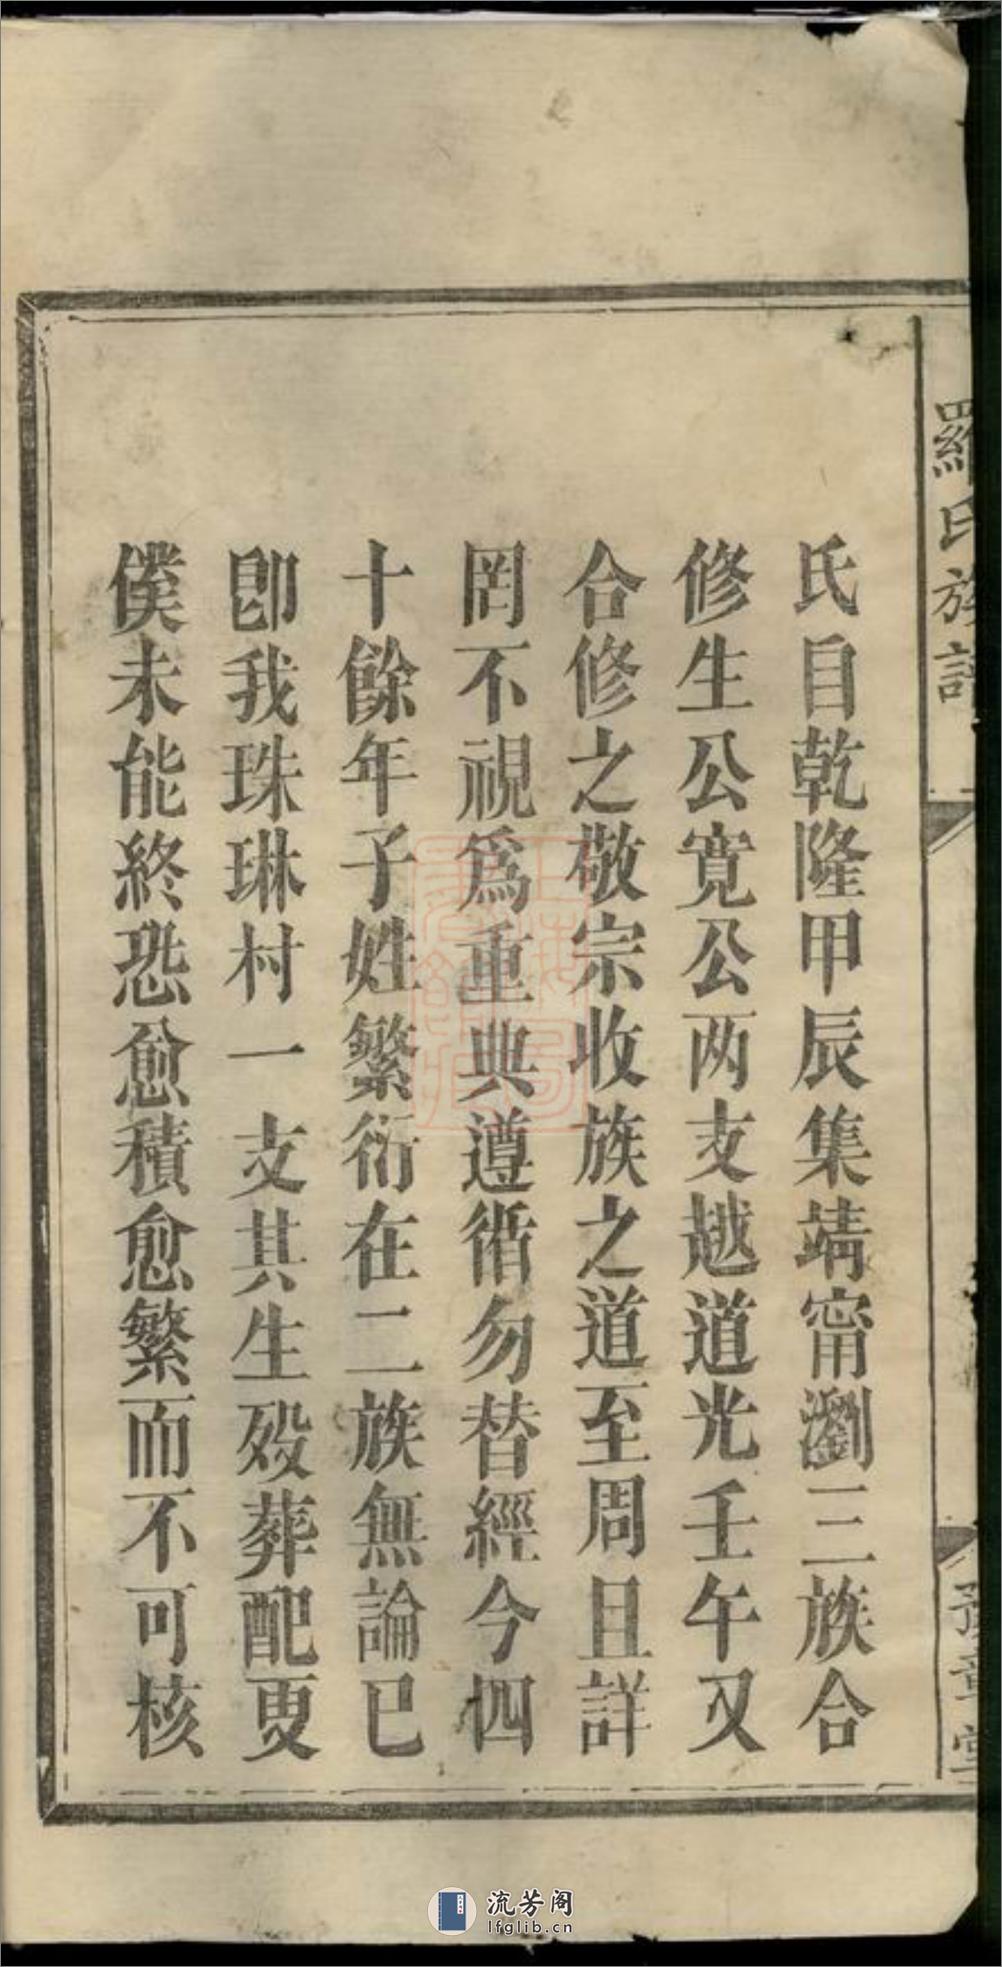 羅氏族譜
豫章堂
氏自乾隆甲辰集靖甯瀏三族合
修生公寬公两支越道光壬午又
合修之敬宗收族之道至周且詳
罔不視爲重典遵循勿替經今四
十餘年子姓繁衍在二族無論已
卽我珠琳村一支其生殁葬配更
僕未能終恐愈積愈繁而不可核
流芳阁
lfglib.cn